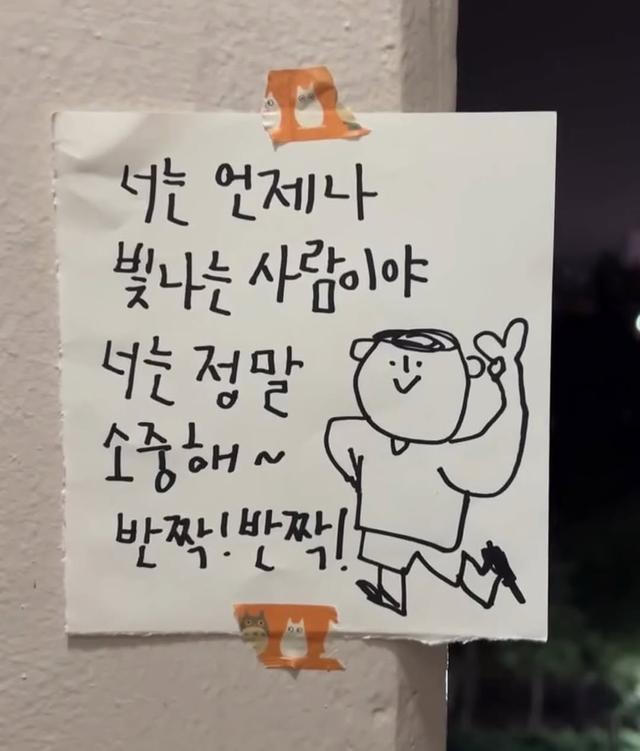 너는 언제나
빛나는 사람이야
너는 정말
소중해~
반짝!반짝!